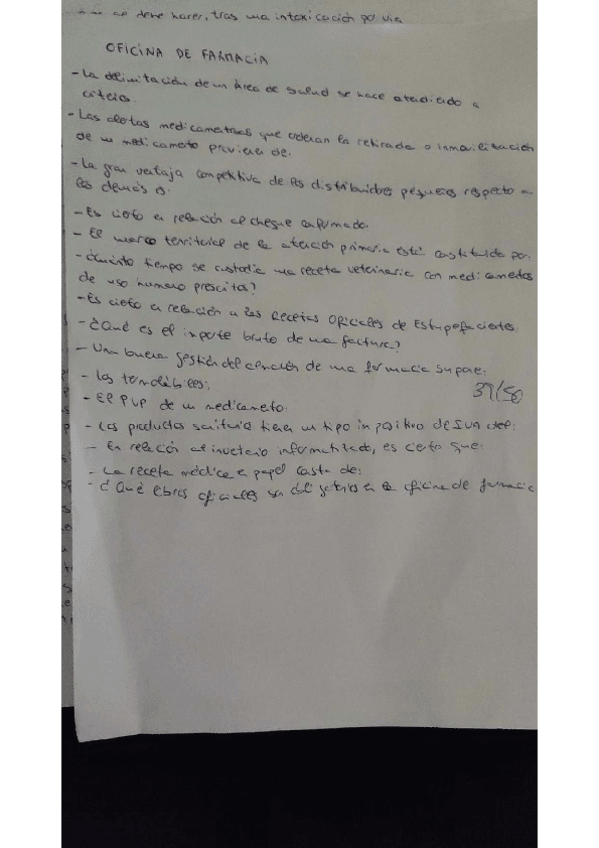 se debe hacer, tras una intoxicación por vía
OFICINA DE FARMACIA
- La delimitación de un área de salud se hace atendiendo a
criterios.
- Las alertas medicamentosas que ordenan la retirada o inmovilización
de un medicamento provienen de:
- La gran ventaja competitiva de los distribuidores pequeños respecto a
los demás es:
- Es cierto en relación al cheque conformado.
- El marco territorial de la atención primaria está constituida por:
- ¿Cuánto tiempo se custodia una receta veterinaria con medicamentos
de uso humano prescritos?
- Es cierto en relación a las Recetas Oficiales de Estupefacientes
- ¿Qué es el importe bruto de una factura?
- Una buena gestión del almacén de una farmacia supone:
- Los termolábiles:
39/50
- El PVP de un medicamento:
- Los productos sanitario tienen un tipo impositivo de IVA del:
- En relación al inventario informatizado, es cierto que:
- La receta médica en papel consta de:
- ¿Qué libros oficiales son obligatorios en la oficina de farmacia